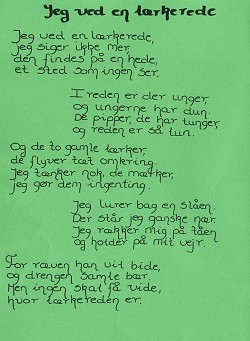 Jeg ved en lærkerede
Jeg ved en lærkerede,
jeg siger ikke mer,
den findes på en hede,
et sted som ingen ser.
I reden er der unger,
og ungerne har dun.
De pipper, de har tunger,
og reden er så lun.
Og de to gamle lærker,
de flyver tæt omkring.
Jeg tænker nok, de mærker,
jeg gør dem ingenting.
Jeg lurer bag en slåen.
Der står jeg ganske nær.
Jeg rækker mig på tåen
og holder på mit vejr.
For ræven han vil bide,
og drengen samle bær.
Men ingen skal få vide,
hvor lærkereden er.